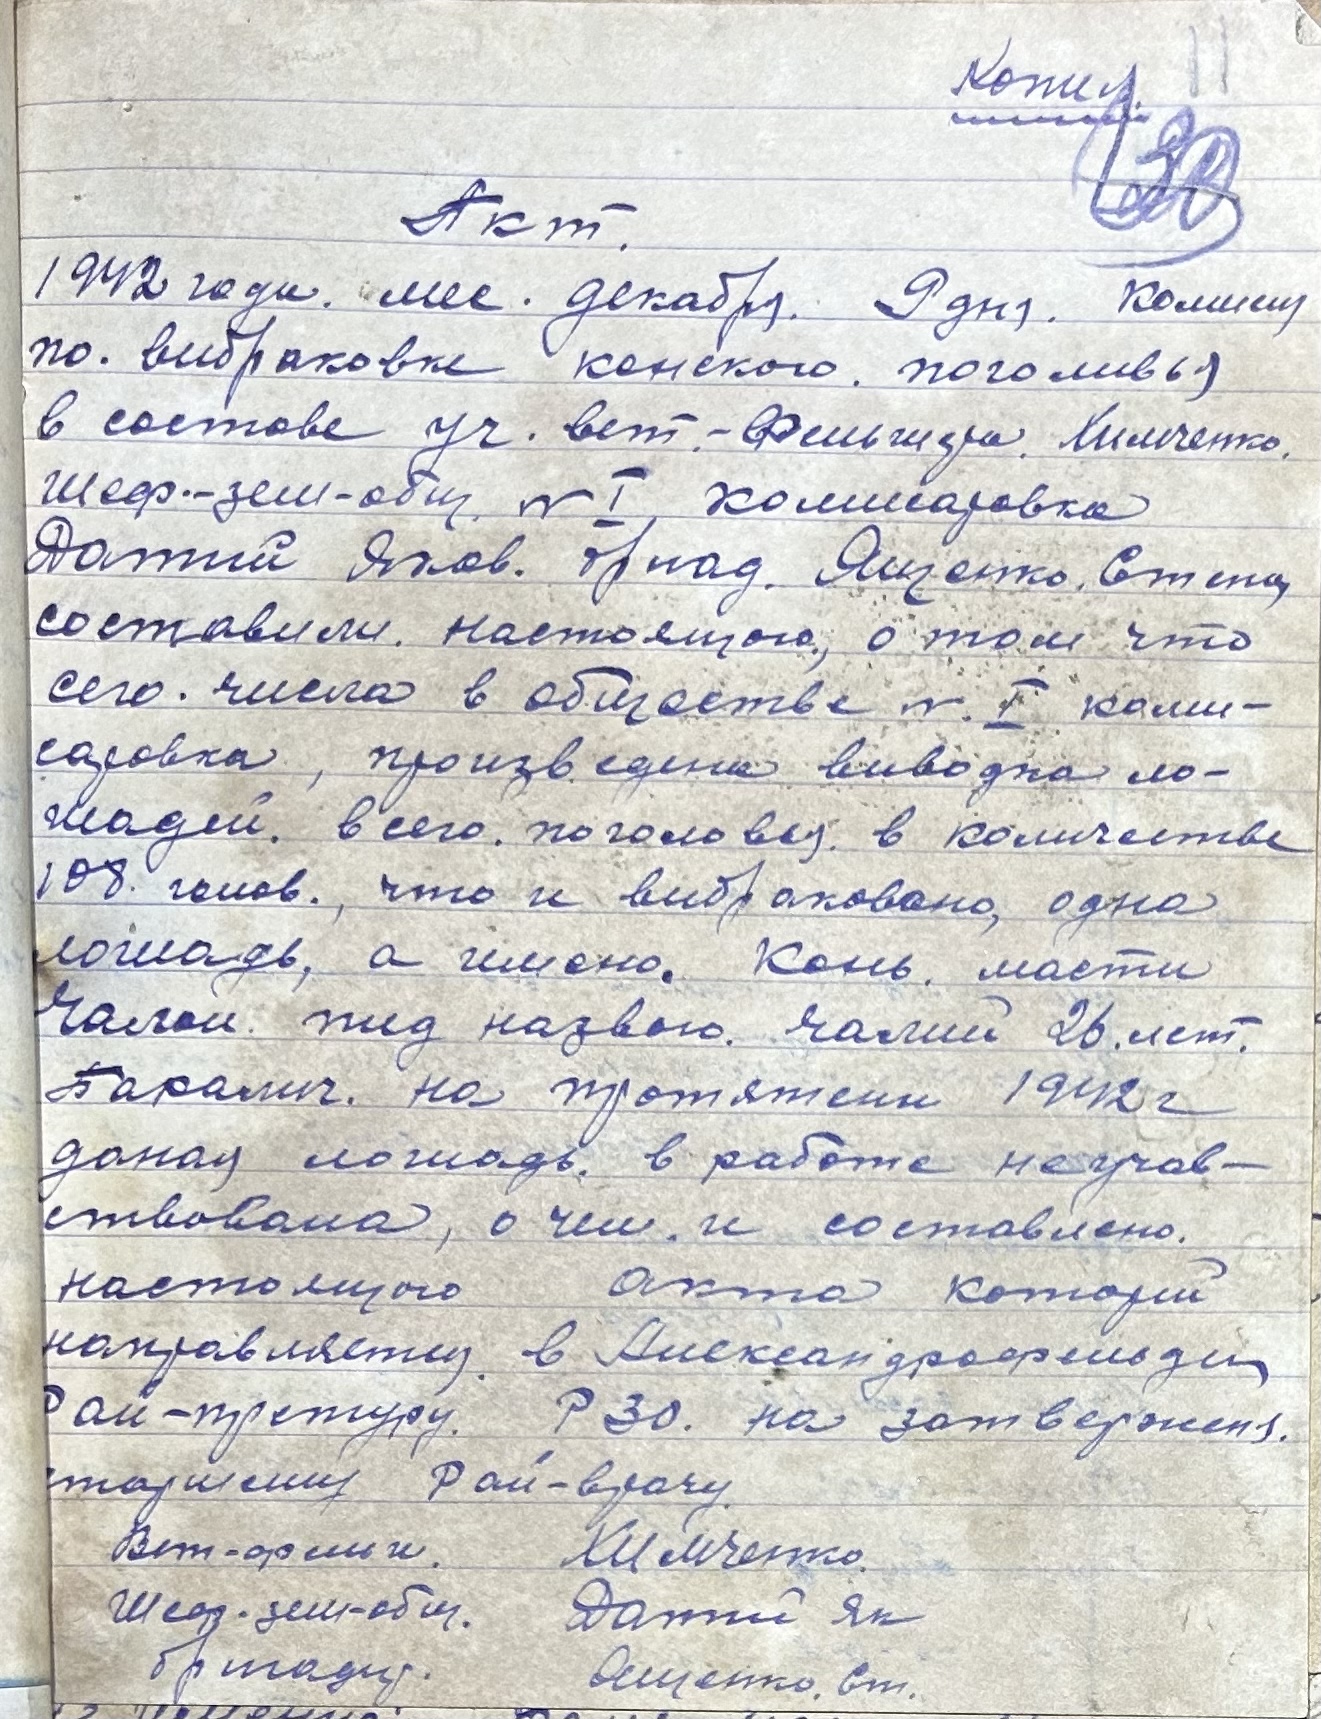 Копия.
30
Акт.
1942 года. мес. декабря. 9 дня. Комисия
по. вибраковке конского. поголивья
в составе уч. вет.-Фельшера. Химченко.
Шеф.-зем-общ. № I Комисаровка
Датий Яков. бригад. Ященко. Степан
составили. настоящого, о том что
сего. числа в обществе №. I коми-
саровка, произведена виводка ло-
шадей. всего. поголовья. в количестве
108. голов., что и вибраковано, одна
лошадь, а имено. Конь. масти
Чалой. под назвою. Чалий 26. лет.
на протяжени 1942 г
даная лошадь. в работе неучав-
ствовала, о чем. и составлено.
настоящого акта которий
направляется. в Александрофельдскую
Рай-претуру. РЗО. на затвержения.
старшему Рай-врачу
Вет-фельш. Химченко.
Шеф-зем-общ. Датий Як
бригадир. Ященко. Ст.